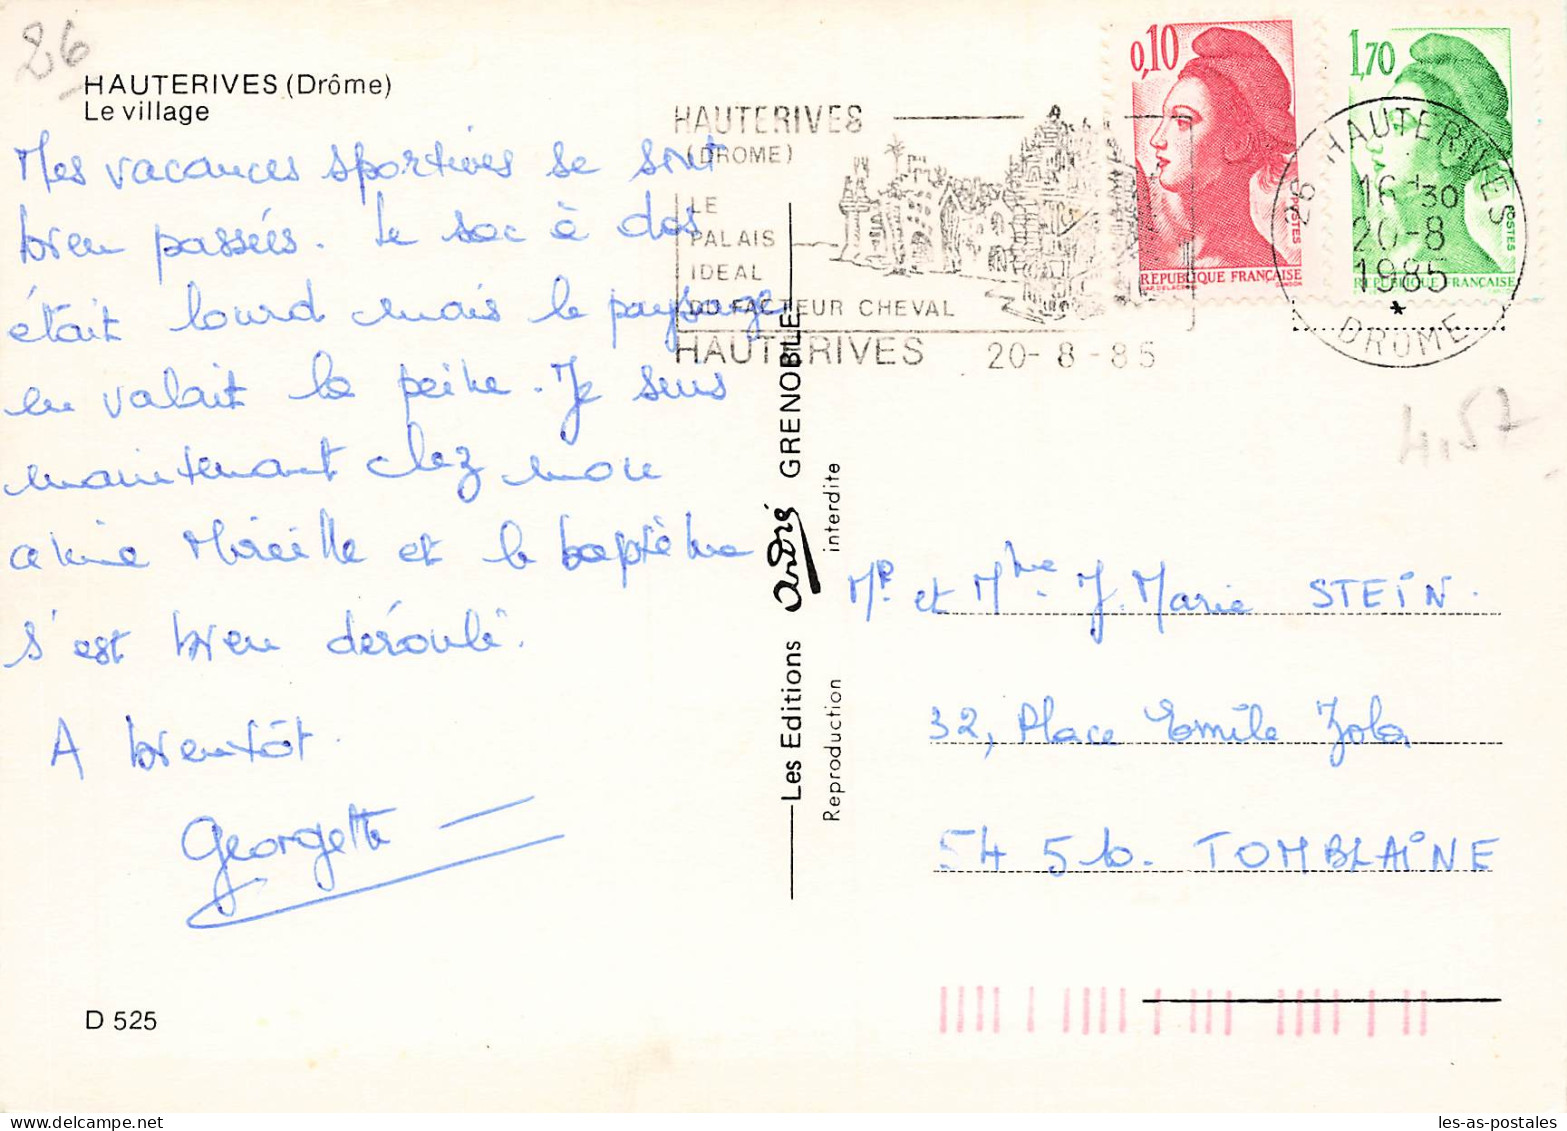 26
HAUTERIVES (Drôme)
Le village
Mes vacances sportives se sont
bien passées. Le sac à dos
était lourd mais le paysage
en valait la peine. Je suis
maintenant chez mon
amie Mireille et le baptême
s'est bien déroulé.
A bientôt.
Georgette
D 525
HAUTERIVES
(DROME)
LE
PALAIS
IDEAL
DU FACTEUR CHEVAL
HAUTERIVES 20-8-85
0,10
POSTES
REPUBLIQUE FRANÇAISE
1,70
POSTES
REPUBLIQUE FRANÇAISE
26 HAUTERIVES
16 H 30
20-8
1985
*
DROME
4,57
Les Editions André GRENOBLE
Reproduction interdite
Mr et Mme J. Marie STEIN.
32, Place Emile Zola
54510. TOMBLAINE
les-as-postales